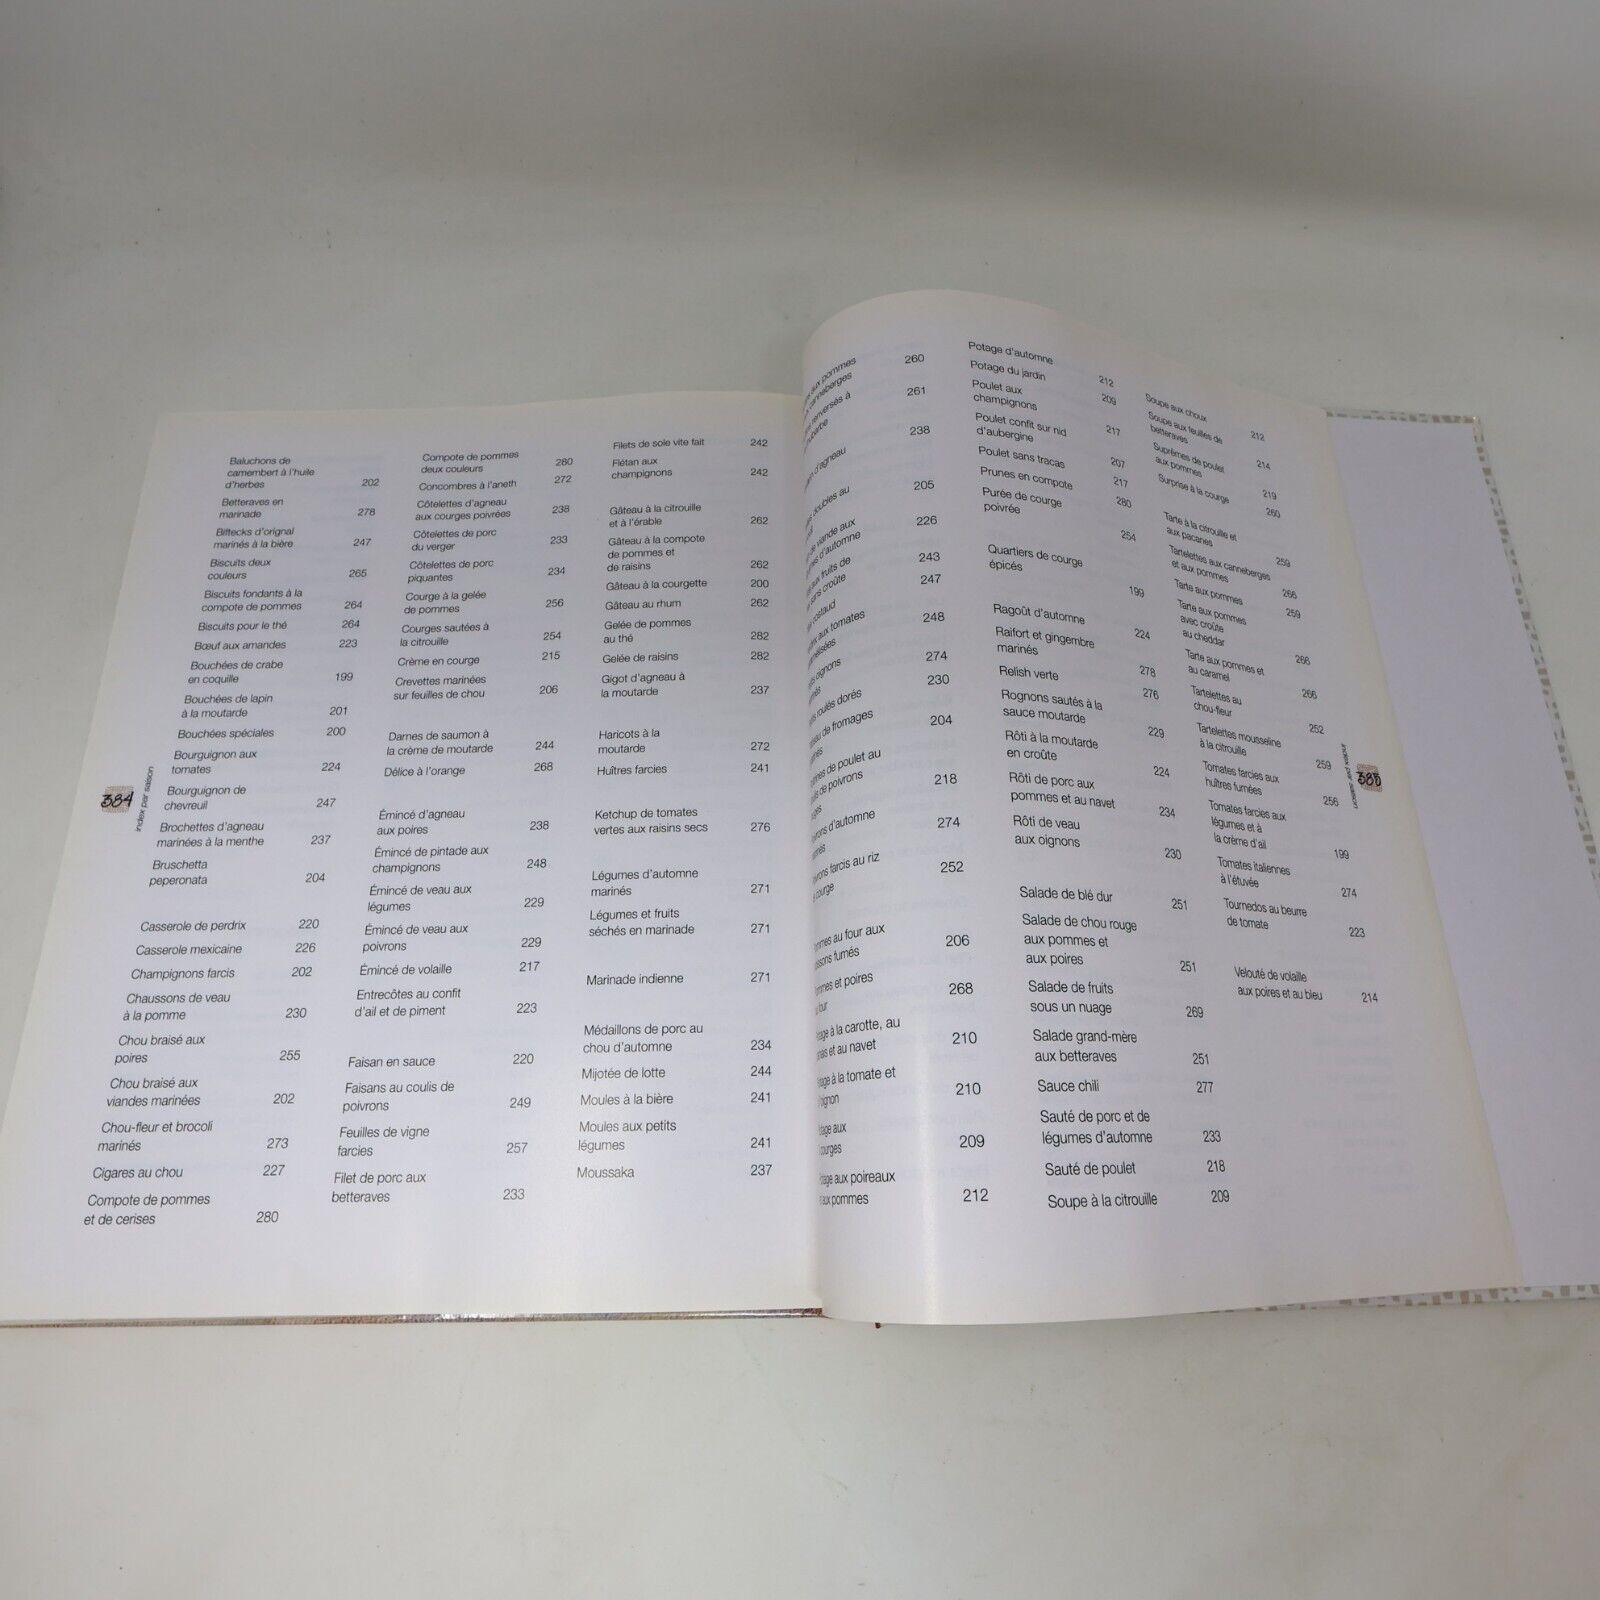 Baluchons de
camembert à l'huile
d'herbes 202
Betteraves en
marinade 278
Biftecks d'orignal
marinés à la bière 247
Biscuits deux
couleurs 265
Biscuits fondants à la
compote de pommes 264
Biscuits pour le thé 264
Bœuf aux amandes 223
Bouchées de crabe
en coquille 199
Bouchées de lapin
à la moutarde 201
Bouchées spéciales 200
Bourguignon aux
tomates 224
Bourguignon de
chevreuil 247
Brochettes d'agneau
marinées à la menthe 237
Bruschetta
peperonata 204
Casserole de perdrix 220
Casserole mexicaine 226
Champignons farcis 202
Chaussons de veau
à la pomme 230
Chou braisé aux
poires 255
Chou braisé aux
viandes marinées 202
Chou-fleur et brocoli
marinés 273
Cigares au chou 227
Compote de pommes
et de cerises 280
Compote de pommes
deux couleurs 280
Concombres à l'aneth 272
Côtelettes d'agneau
aux courges poivrées 238
Côtelettes de porc
du verger 233
Côtelettes de porc
piquantes 234
Courge à la gelée
de pommes 256
Courges sautées à
la citrouille 254
Crème en courge 215
Crevettes marinées
sur feuilles de chou 206
Darnes de saumon à
la crème de moutarde 244
Délice à l'orange 268
Émincé d'agneau
aux poires 238
Émincé de pintade aux
champignons 248
Émincé de veau aux
légumes 229
Émincé de veau aux
poivrons 229
Émincé de volaille 217
Entrecôtes au confit
d'ail et de piment 223
Faisan en sauce 220
Faisans au coulis de
poivrons 249
Feuilles de vigne
farcies 257
Filet de porc aux
betteraves 233
Filets de sole vite fait 242
Flétan aux
champignons 242
Gâteau à la citrouille
et à l'érable 262
Gâteau à la compote
de pommes et
de raisins 262
Gâteau à la courgette 200
Gâteau au rhum 262
Gelée de pommes
au thé 282
Gelée de raisins 282
Gigot d'agneau à
la moutarde 237
Haricots à la
moutarde 272
Huîtres farcies 241
Ketchup de tomates
vertes aux raisins secs 276
Légumes d'automne
marinés 271
Légumes et fruits
séchés en marinade 271
Marinade indienne 271
Médaillons de porc au
chou d'automne 234
Mijotée de lotte 244
Moules à la bière 241
Moules aux petits
légumes 241
Moussaka 237
384
index par saison
aux pommes
canneberges 260
renversés à
261
d'agneau 238
doubles au
205
de viande aux
d'automne 226
aux fruits de
sans croûte 243
247
aux tomates
248
oignons
274
roulés dorés 230
de fromages
204
de poulet au
de poivrons
218
d'automne
274
farcis au riz
courge 252
au four aux
fumés 206
et poires
four 268
à la carotte, au
et au navet 210
à la tomate et
210
aux
courges 209
aux poireaux
aux pommes 212
Potage d'automne 212
Potage du jardin 209
Poulet aux
champignons 217
Poulet confit sur nid
d'aubergine 207
Poulet sans tracas 217
Prunes en compote 280
Purée de courge
poivrée 254
Quartiers de courge
épicés 199
Ragoût d'automne 224
Raifort et gingembre
marinés 278
Relish verte 276
Rognons sautés à la
sauce moutarde 229
Rôti à la moutarde
en croûte 224
Rôti de porc aux
pommes et au navet 234
Rôti de veau
aux oignons 230
Salade de blé dur 251
Salade de chou rouge
aux pommes et
aux poires 251
Salade de fruits
sous un nuage 269
Salade grand-mère
aux betteraves 251
Sauce chili 277
Sauté de porc et de
légumes d'automne 233
Sauté de poulet 218
Soupe à la citrouille 209
Soupe aux choux 212
Soupe aux feuilles de
betteraves 214
Suprêmes de poulet
aux pommes 219
Surprise à la courge 260
Tarte à la citrouille et
aux pacanes 259
Tartelettes aux canneberges
et aux pommes 266
Tarte aux pommes 259
Tarte aux pommes
avec croûte
au cheddar 266
Tarte aux pommes et
au caramel 266
Tartelettes au
chou-fleur 252
Tartelettes mousseline
à la citrouille 259
Tomates farcies aux
huîtres fumées 256
Tomates farcies aux
légumes et à
la crème d'ail 199
Tomates italiennes
à l'étuvée 274
Tournedos au beurre
de tomate 223
Velouté de volaille
aux poires et au bleu 214
index par saison
385